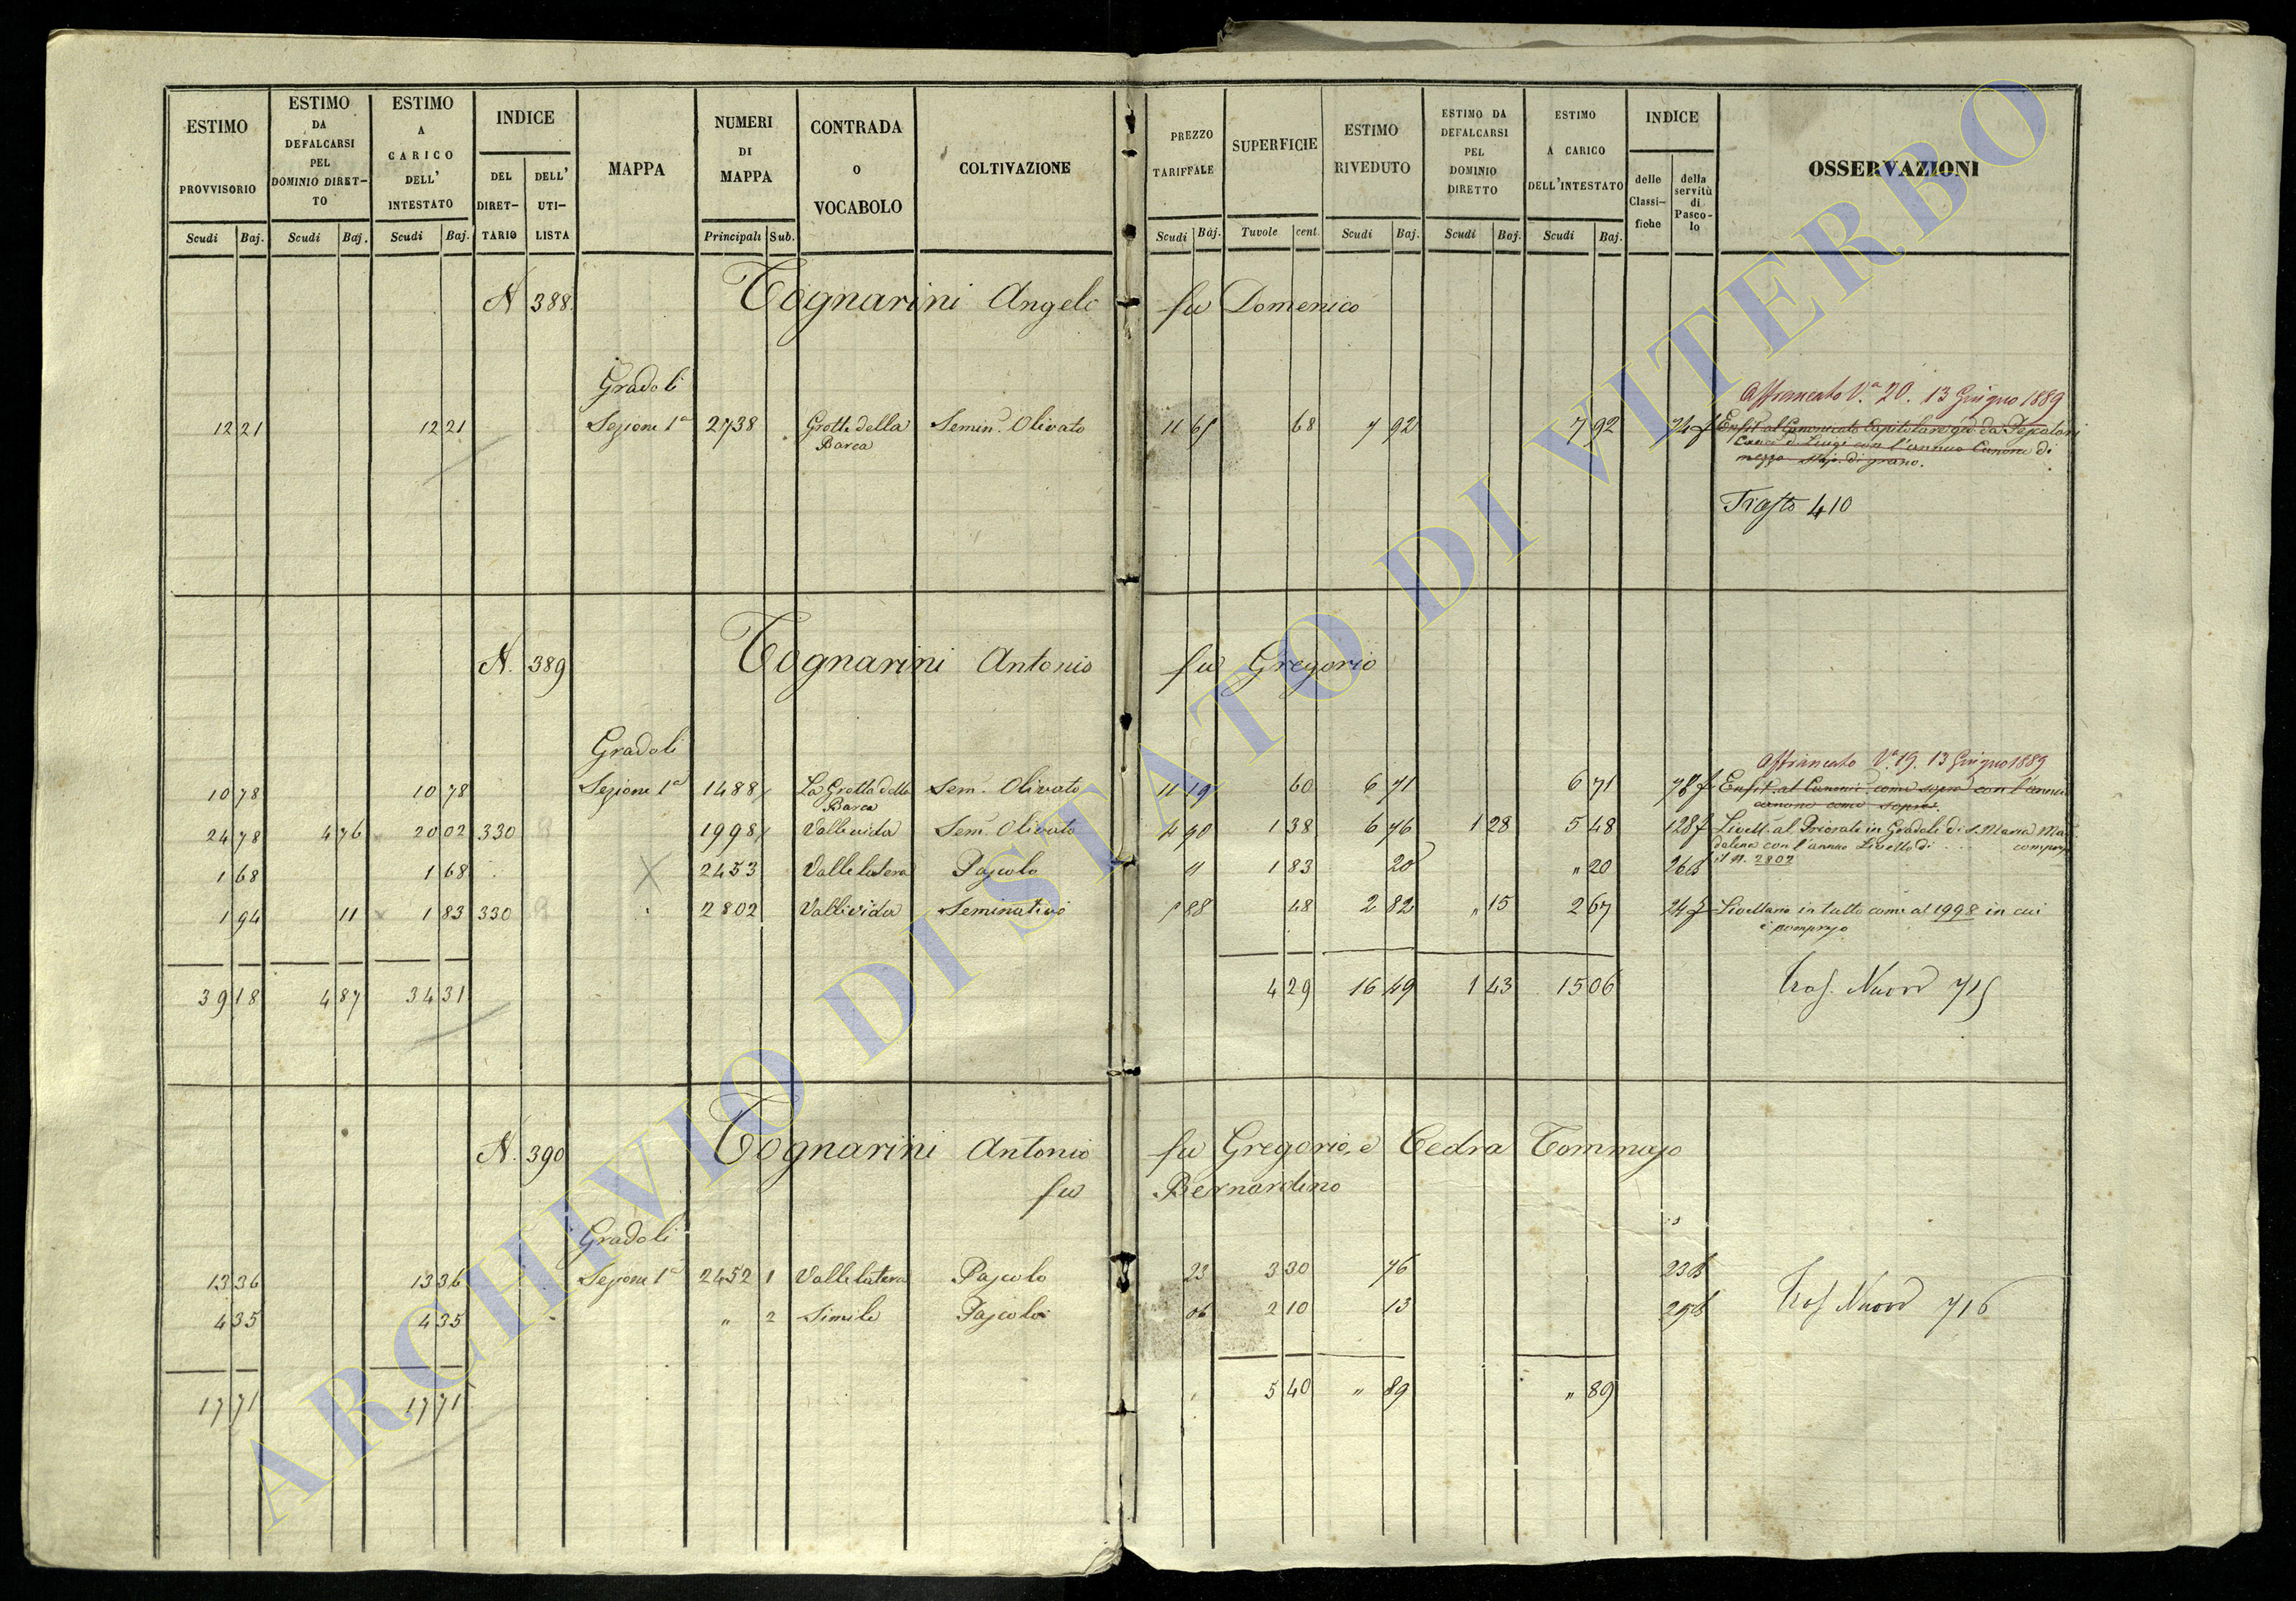 ESTIMO PROVVISORIO | ESTIMO DA DEFALCARSI PEL DOMINIO DIRET-TO | ESTIMO A CARICO DELL' INTESTATO | INDICE DEL DIRET-TARIO | DELL' UTI-LISTA | MAPPA | NUMERI DI MAPPA | CONTRADA O VOCABOLO | COLTIVAZIONE | PREZZO TARIFFALE | SUPERFICIE | ESTIMO RIVEDUTO | ESTIMO DA DEFALCARSI PEL DOMINIO DIRETTO | ESTIMO A CARICO DELL'INTESTATO | INDICE delle Classi-fiche | della servitù di Pasco-lo | OSSERVAZIONI
Scudi Baj. | Scudi Baj. | Scudi Baj. | Principali Sub. | Scudi Baj. | Tavole cent. | Scudi Baj. | Scudi Baj. | Scudi Baj.
N 388. Tognarini Angelo fu Domenico
Gradoli
Affrancato V.a 20. 13 Giugno 1889
12 21 | 12 21 | Sezione 1a | 2738 | Grotte della Barca | Semin. Olivato | 11 65 | 68 | 7 92 | 7 92 | Enfit. al Canonicato Capitolare
con l'annuo Canone di
mezzo di grano.
Trasto 410
N. 389 Tognarini Antonio fu Gregorio
Gradoli
Affrancato V.a 19. 13 Giugno 1889
10 78 | 10 78 | Sezione 1a | 1488 | La Grotta della Barca | Sem. Olivato | 11 19 | 60 | 6 71 | 6 71 | 78 f | Enfit. al Canoni. come sopra con l'annuo
canone come sopra.
24 78 | 4 76 | 20 02 | 330 | 1998 | Vallevida | Sem. Olivato | 4 90 | 1 38 | 6 76 | 1 28 | 5 48 | 128 f | Livell. al Priorato in Gradoli di S. Maria Mad
dalena con l'annuo Livello di
il N. 2802
1 68 | 1 68 | 2453 | Valle latera | Pascolo | " | 1 83 | 20 | " 20
1 94 | 11 | 1 83 | 330 | 2802 | Vallevida | Seminativo | 5 88 | 48 | 2 82 | " 15 | 2 67 | 24 f | Livellario in tutto come al 1998 in cui
è compreso
39 18 | 4 87 | 34 31 | 4 29 | 16 49 | 1 43 | 15 06 | Tras. Nuovo 715
N. 390 Tognarini Antonio fu Gregorio, e Cedra Tommaso
fu Bernardino
Gradoli
13 36 | 13 36 | Sezione 1a | 2452 1 | Valle latera | Pascolo | 23 | 3 30 | 76
4 35 | 4 35 | " 2 | Simile | Pascolo | 06 | 2 10 | 13 | Tras Nuovo 716
17 71 | 17 71 | 5 40 | " 89 | " 89
ARCHIVIO DI STATO DI VITERBO